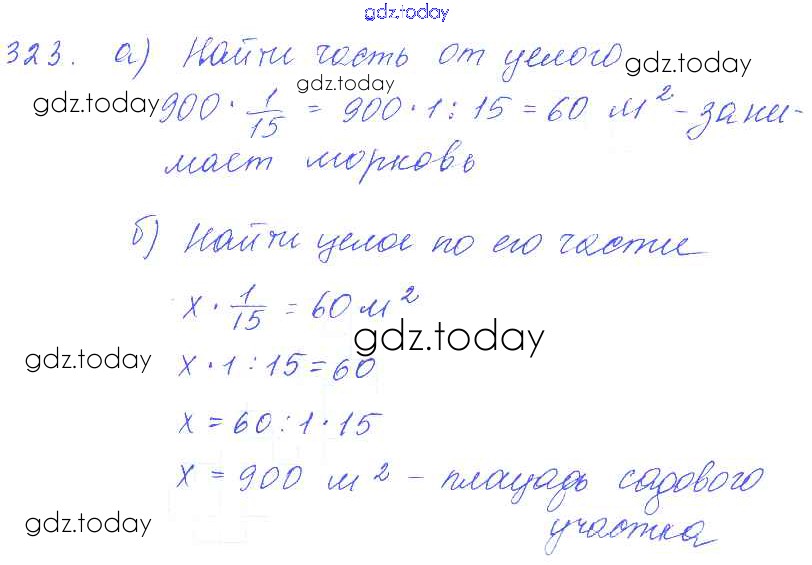 gdz.today
323. а) Найти часть от целого gdz.today
gdz.today
gdz.today 900 · 1/15 = 900 · 1 : 15 = 60 м² - зани-
мает морковь
б) Найти целое по его части
x · 1/15 = 60 м²
gdz.today
gdz.today x · 1 : 15 = 60
x = 60 : 1 · 15
x = 900 м² - площадь садового
gdz.today участка